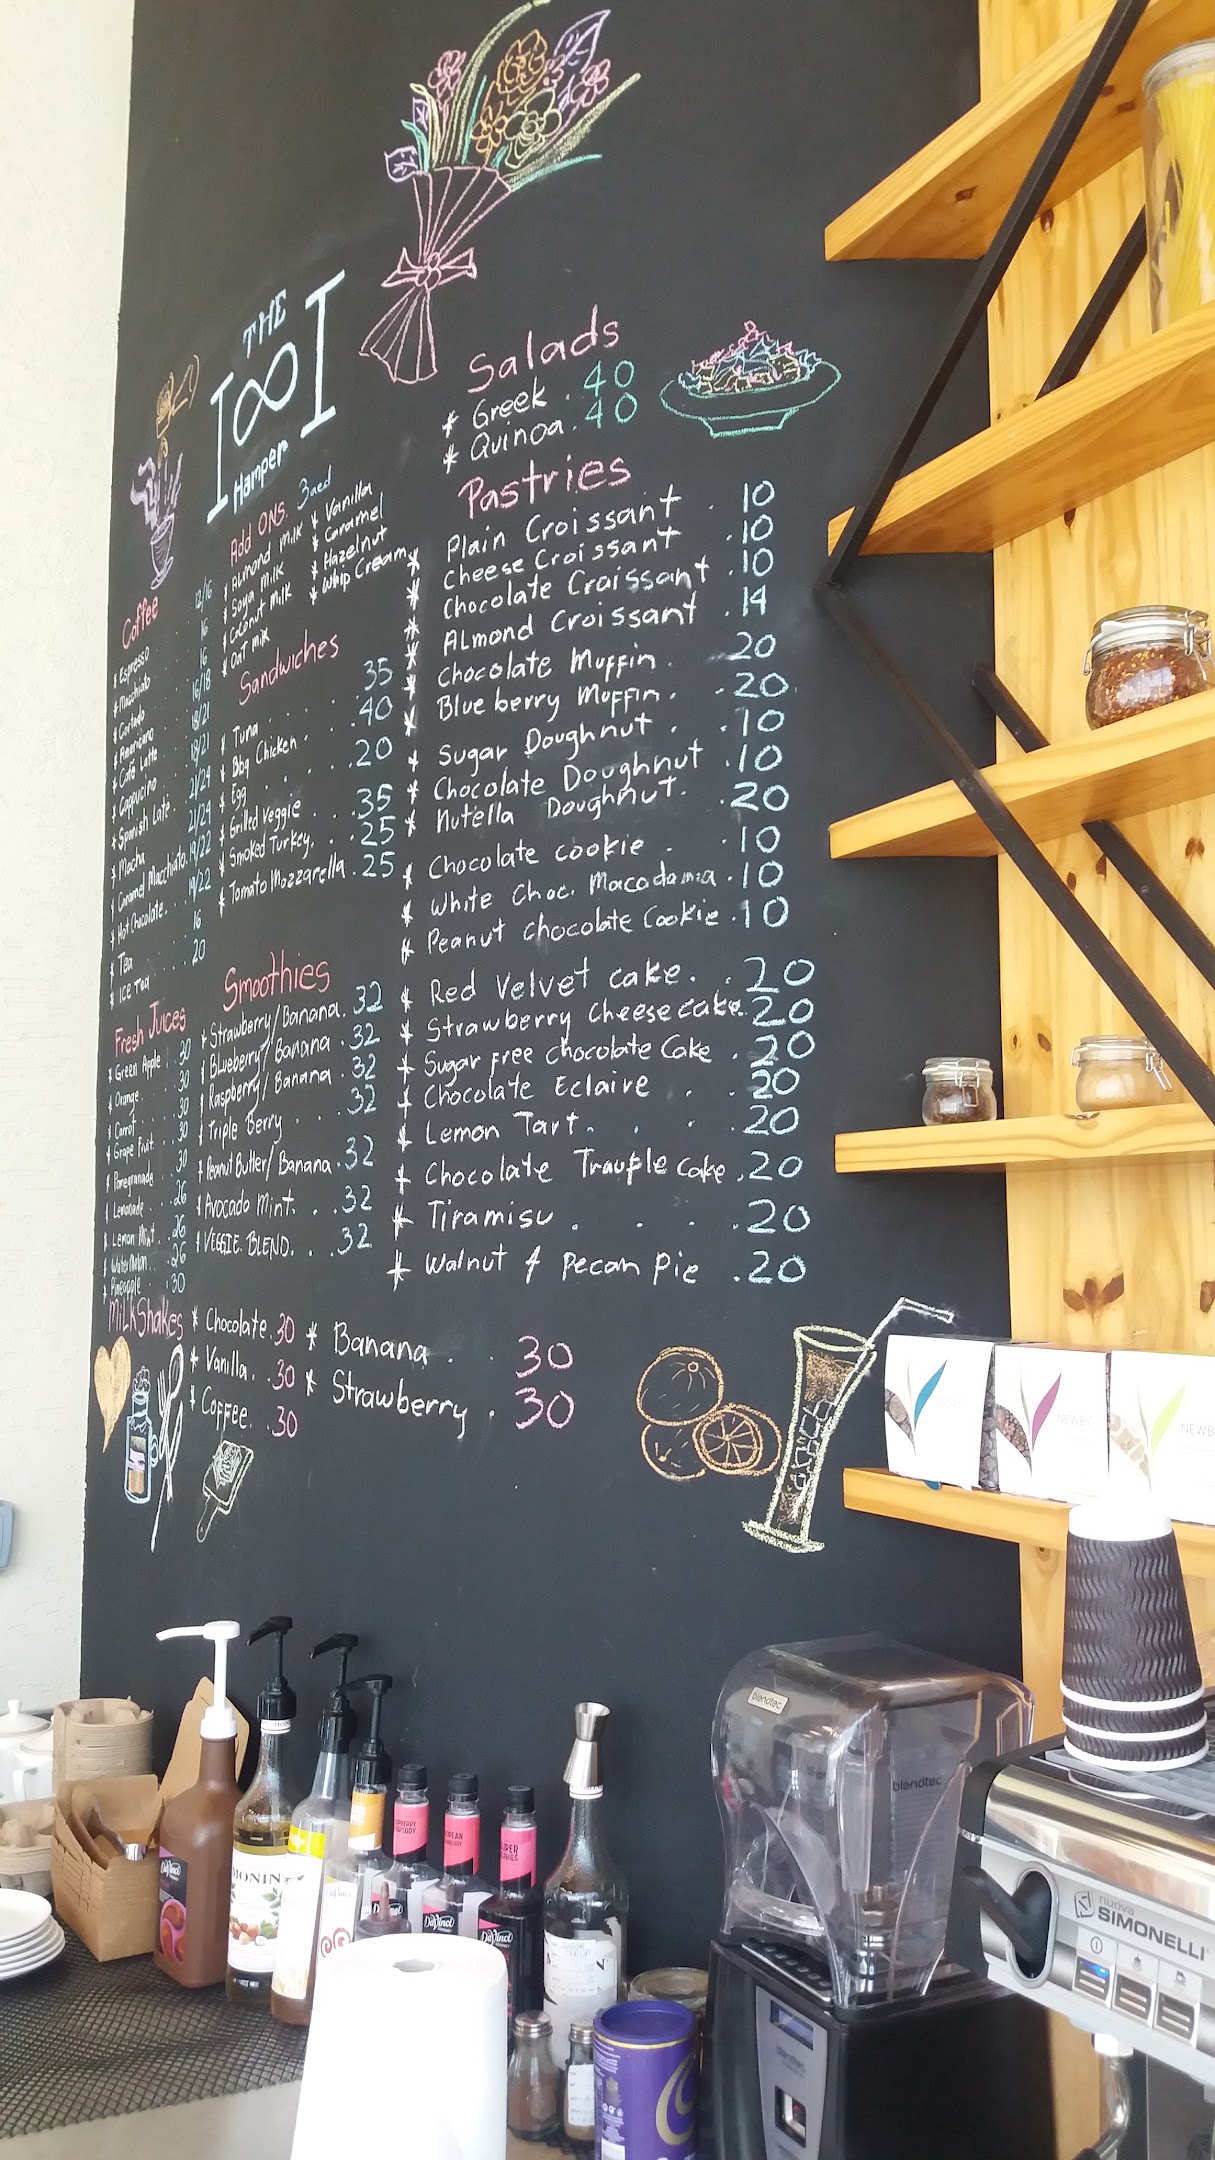 THE
I∞I
Hamper
Add ONS. 3aed
* Almond Milk
* Soya Milk
* Coconut Milk
* OaT Milk
* Vanilla
* Caramel
* Hazelnut
* Whip Cream
Coffee
* Espresso . . 12/16
* Macchiato . . 16
* Cortado . . 16
* Americano . . 16/18
* Café Latte . . 18/21
* Cappucino . . 18/21
* Spanish Late . . 21/24
* Mocha . . 21/24
* Caramel Macchiato . 19/22
* Hot Chocolate . . 19/22
* Tea . . . 16
* Ice Tea . . . 20
Sandwiches
* Tuna . . . . . 35
* Bbq Chicken . . . 40
* Egg . . . . . 20
* Grilled Veggie . . . 35
* Smoked Turkey. . . 25
* Tomato Mozzarella . 25
Fresh Juices
* Green Apple . 30
* Orange . . 30
* Carrot . . 30
* Grape Fruit . 30
* Pomegranade . 30
* Lemonade . . 26
* Lemon Mint . . 26
* Water Melon . . 26
* Pineapple . . 30
Smoothies
* Strawberry/Banana. 32
* Blueberry/Banana . 32
* Raspberry/Banana . 32
* Triple Berry . . . 32
* Peanut Butter/Banana . 32
* Avocado Mint. . . 32
* VEGGIE BLEND. . . 32
MilkShakes
* Chocolate . 30
* Vanilla. . 30
* Coffee. . 30
* Banana . . 30
* Strawberry . 30
Salads
* Greek . 40
* Quinoa . 40
Pastries
* Plain Croissant . 10
* Cheese Croissant . 10
* Chocolate Croissant . 10
* Almond Croissant . 14
* Chocolate Muffin . 20
* Blue berry Muffin . . 20
* Sugar Doughnut . . 10
* Chocolate Doughnut . 10
* Nutella Doughnut . . 20
* Chocolate cookie . . 10
* White Choc. Macadamia . 10
* Peanut chocolate Cookie . 10
* Red Velvet cake. . 20
* Strawberry Cheesecake . 20
* Sugar free chocolate Cake . 20
* Chocolate Eclaire . . 20
* Lemon Tart. . . . 20
* Chocolate Trauple cake . 20
* Tiramisu . . . . 20
* Walnut & pecan pie . 20
NEWBY
NEWB
blendtec
blendtec
blendtec
nuova
SIMONELLI
MONIN
DaVinci
DaVinci
DaVinci